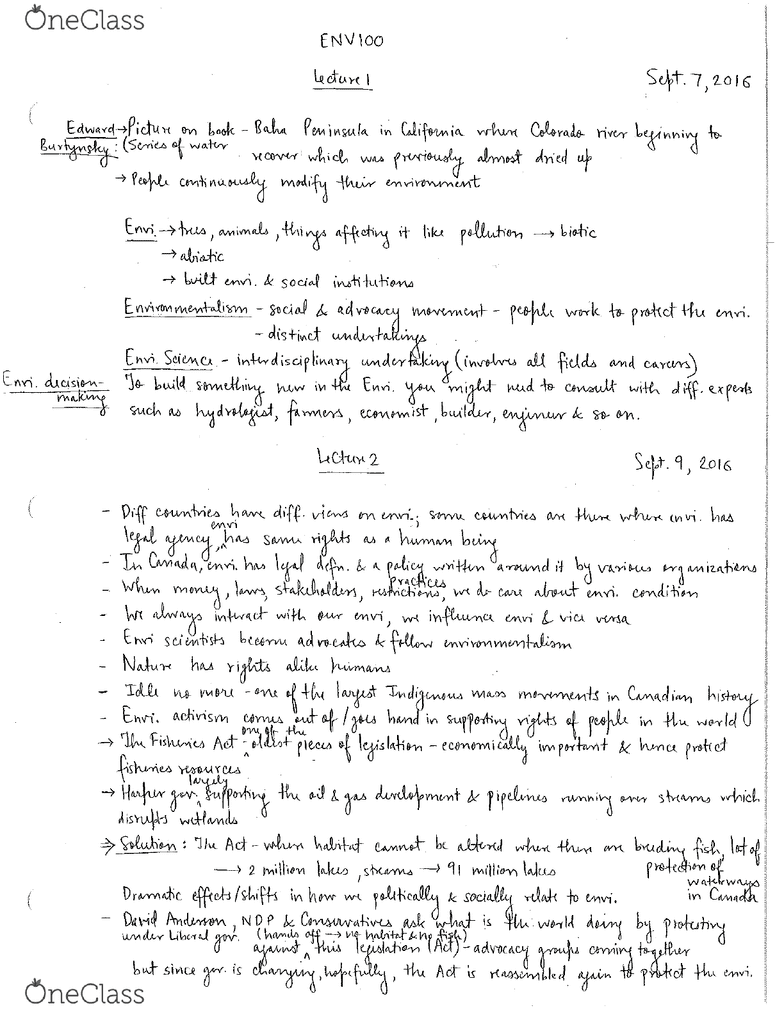 OneClass
ENV100
Lecture 1 Sept. 7, 2016
Edward → Picture on book - Baha Peninsula in California where Colorado river beginning to
Burtynsky: (Series of water recover which was previously almost dried up
→ People continuously modify their environment
Envi. → trees, animals, things affecting it like pollution → biotic
→ abiatic
→ built envi. & social institutions
Environmentalism - social & advocacy movement - people work to protect the envi.
- distinct undertakings
Envi. Science - interdisciplinary undertaking (involves all fields and careers)
Envi. decision-making To build something new in the Envi. you might need to consult with diff. experts
such as hydrologist, farmers, economist, builder, engineer & so on.
Lecture 2 Sept. 9, 2016
- Diff countries have diff. views on envi.; some countries are there where envi. has
legal agency, envi has same rights as a human being
- In Canada, envi. has legal defn. & a policy written around it by various organizations
- When money, laws, stakeholders, restrictions, practices we do care about envi. condition
- We always interact with our envi, we influence envi & vice versa
- Envi scientists become advocates & follow environmentalism
- Nature has rights alike humans
- Idle no more - one of the largest Indigenous mass movements in Canadian history
- Envi. activism comes out of / goes hand in supporting rights of people in the world
→ The Fisheries Act - one of the oldest pieces of legislation - economically important & hence protect
fisheries resources
→ Harper gov. largely supporting the oil & gas development & pipelines running over streams which
disrupts wetlands
⇒ Solution: The Act - where habitat cannot be altered where there are breeding fish, lot of
→ 2 million lakes, streams → 91 million lakes protection of
waterways
Dramatic effects/shifts in how we politically & socially relate to envi. in Canada
- David Anderson, NDP & Conservatives ask what is the world doing by protesting
under Liberal gov. (hands off → no habitat & no fish)
against this legislation (Act) - advocacy groups coming together
but since gov. is changing, hopefully, the Act is reassembled again to protect the envi.
OneClass